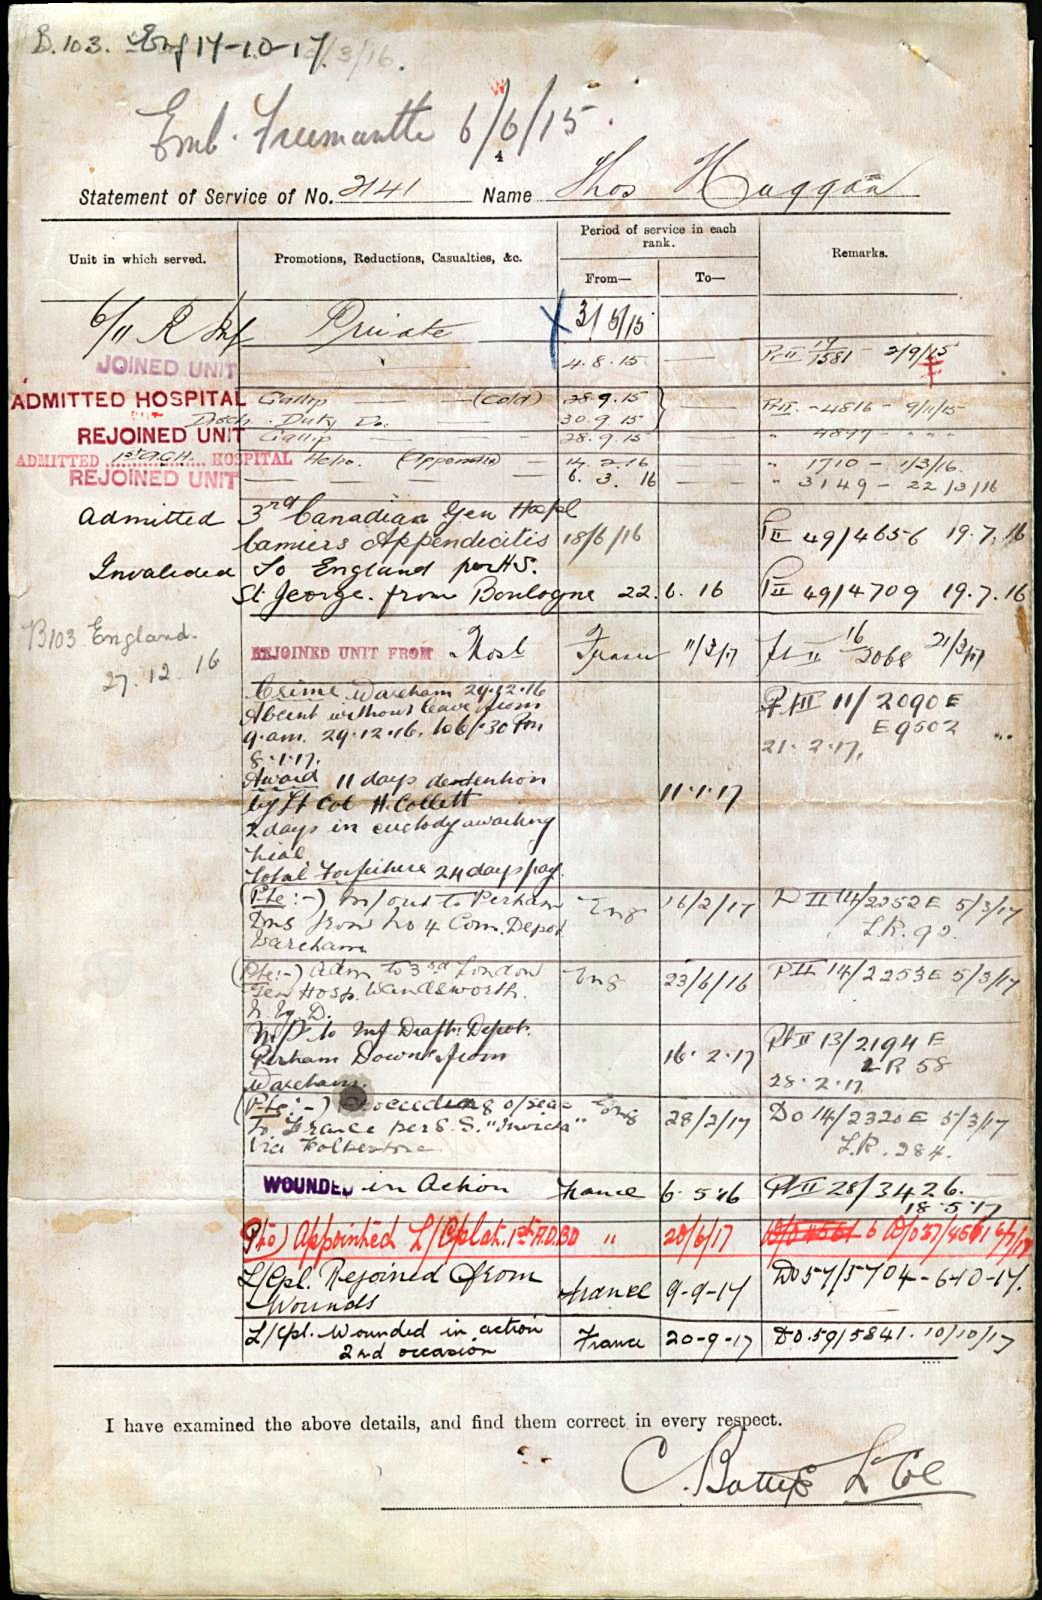 B.103. Eng 17-10-17 /3/16.
Emb. Freemantle 6/6/15.
4
Statement of Service of No. 2141 Name Thos Huggan
Unit in which served. Promotions, Reductions, Casualties, &c. Period of service in each rank. Remarks.
From— To—
6/11 R Inf Private 31/5/15
JOINED UNIT 4.8.15 Pt II 1581 - 2/9/15
ADMITTED HOSPITAL Gallip (Cold) 28.9.15 Pt II - 4816 - 9/11/15
Disch. Duty Do. 30.9.15
REJOINED UNIT Gallip 28.9.15 " 4897 - " - "
ADMITTED 1st A.G.H. HOSPITAL Helio. (Appendix) 14.2.16 " 1710 - 1/3/16.
REJOINED UNIT 6. 3. 16 " 3149 - 22/3/16
Admitted 3rd Canadian Gen Hospl
Camiers Appendicitis 18/6/16 P II 49/4656 19.7.16
Invalided To England per H.S.
St. George. from Boulogne 22.6.16 P II 49/4709 19.7.16
B103 England.
27.12.16
REJOINED UNIT FROM Hosl France 11/3/17 Pt II 16/2068 21/3/17
Crime Wareham 29.12.16
Absent without leave from
9.am. 29.12.16. to 6.30 Pm
8.1.17.
Pt III 11/2090 E
E9502
21.2.17.
Award 11 days detention
by Lt Col H. Collett 11.1.17
2 days in custody awaiting
trial
Total Forfeiture 24 days pay.
(Pte:-) M/out to Perham Eng 16/2/17 P II 14/2252 E 5/3/17
Dns from No 4 Com. Depot L.R. 90.
Wareham
(Pte:-) Adm to 3rd London Eng 23/6/16 P II 14/2253 E 5/3/17
Gen Hosp. Wandsworth.
M/O to Inf Draft. Depot. Pt II 13/2194 E
Perham Downs from 16.2.17 LR 58
Wareham. 28.2.17
(Pte:-) Proceeding o/seas Eng 28/2/17 Do 14/2320 E 5/3/17
To France per S.S. "Invicta" L.R. 284.
Via Folkestone
WOUNDED in Action France 6.5.16 Pt II 28/3426.
18.5.17
Appointed L/Cpl at 1st A.D.B.D " 20/6/17
L/Cpl. Rejoined from France 9-9-17 Do 57/5704-6-10-17.
Wounds
L/Cpl. Wounded in action France 20-9-17 Do.59/5841. 10/10/17
2nd occasion
I have examined the above details, and find them correct in every respect.